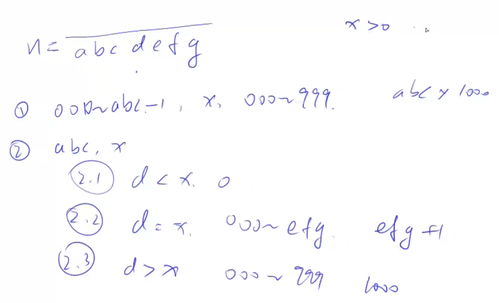 n = abcdefg
x > 0
① 000~abc-1, x, 000~999. abc × 1000
② abc, x
2.1 d < x. 0
2.2 d = x. 000~efg. efg+1
2.3 d > x 000~999 1000